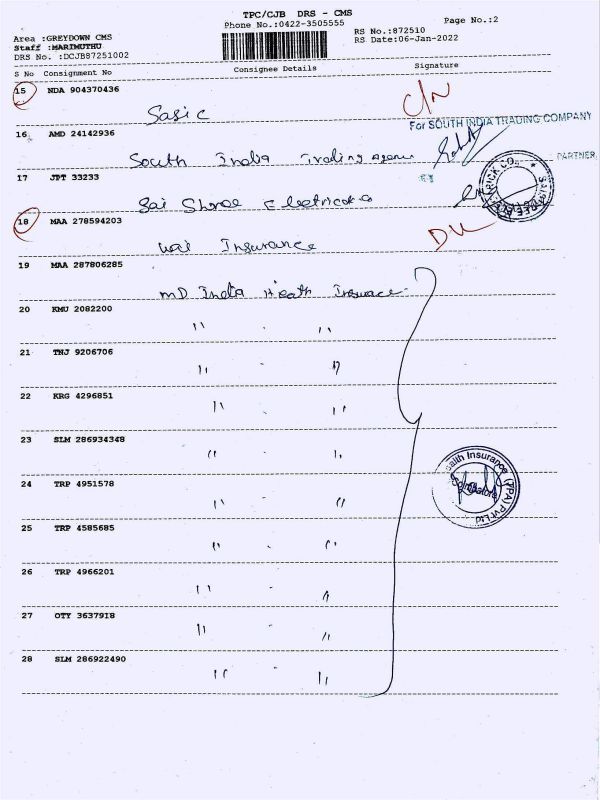 TPC/CJB DRS - CMS
Phone No.:0422-3505555
Page No.:2
Area :GREYDOWN CMS
Staff :MARIMUTHU
DRS No. :DCJB87251002
RS No.:872510
RS Date:06-Jan-2022
S No Consignment No Consignee Details Signature
15 NDA 904370436
Sasic
C/N
16 AMD 24142936
For SOUTH INDIA TRADING COMPANY
South India Trading
PARTNER
17 JPT 33233
Sai Shree Electricals
18 MAA 278594203
Insurance
19 MAA 287806285
MD India Heath Insurace
20 KMU 2082200
" - "
21 TNJ 9206706
" - "
22 KRG 4296851
" - "
23 SLM 286934348
" - "
24 TRP 4951578
" - "
ealth Insurance (TPA) Pvt Ltd
Coimbatore
25 TRP 4585685
" - "
26 TRP 4966201
" - "
27 OTY 3637918
" - "
28 SLM 286922490
" - "